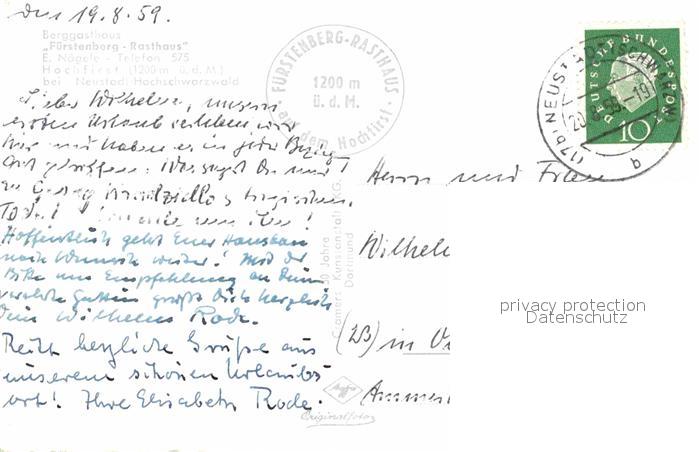 den 19.8.59.
Berggasthaus
"Fürstenberg-Rasthaus"
E. Nägele - Telefon 575
Hochfirst (1200 m ü.d.M.)
bei Neustadt Hochschwarzwald
FÜRSTENBERG-RASTHAUS
1200 m
ü. d. M.
auf dem Hochfirst
DEUTSCHE BUNDESPOST
10
(17b) NEUSTADT (SCHWARZW)
20.8.59.-19
b
Lieber Wilhelm, unseren
ersten Urlaub verleben wir
hier und haben es in jeder Bezieh
gut getroffen. Was sagst Du nur
zu Georg tragischen
Tode!
Hoffentlich geht Euer Hausbau
nach Wunsch weiter! Mit der
Bitte um Empfehlung an Deine
verehrte Gattin grüßt Dich herzlich
Dein Wilhelm Rode.
Recht herzliche Grüße aus
unserem schönen Urlaubs
ort! Ihre Elisabeth Rode.
30 Jahre
Cramers Kunstanstalt KG.
Dortmund
Agfa
Originalfoto
Herrn und Frau
Wilhelm
in
Ammer
privacy protection
Datenschutz